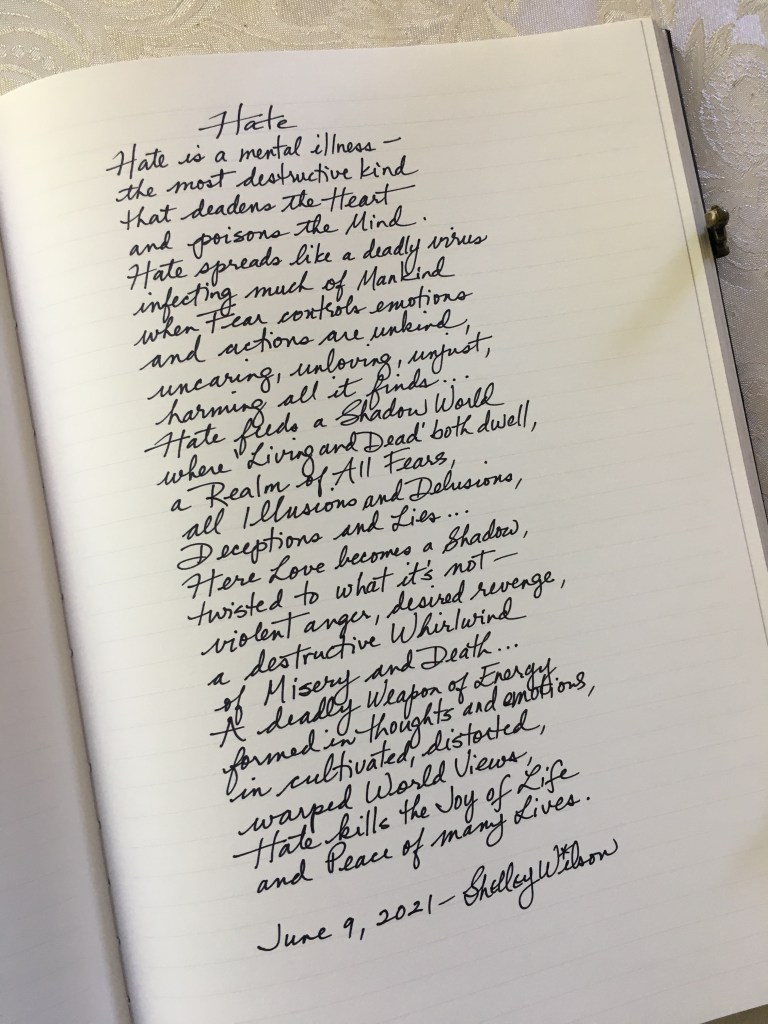 Hate
Hate is a mental illness –
the most destructive kind
that deadens the Heart
and poisons the Mind.
Hate spreads like a deadly virus
infecting much of Mankind
when Fear controls emotions
and actions are unkind,
uncaring, unloving, unjust,
harming all it finds...
Hate feeds a Shadow World
where 'Living and Dead' both dwell,
a Realm of All Fears,
all Illusions and Delusions,
Deceptions and Lies...
Here Love becomes a Shadow,
twisted to what it's not –
violent anger, desired revenge,
a destructive Whirlwind
of Misery and Death...
A deadly Weapon of Energy
formed in thoughts and emotions,
in cultivated, distorted,
warped World Views,
Hate kills the Joy of Life
and Peace of many Lives.
June 9, 2021 – Shelley Wilson